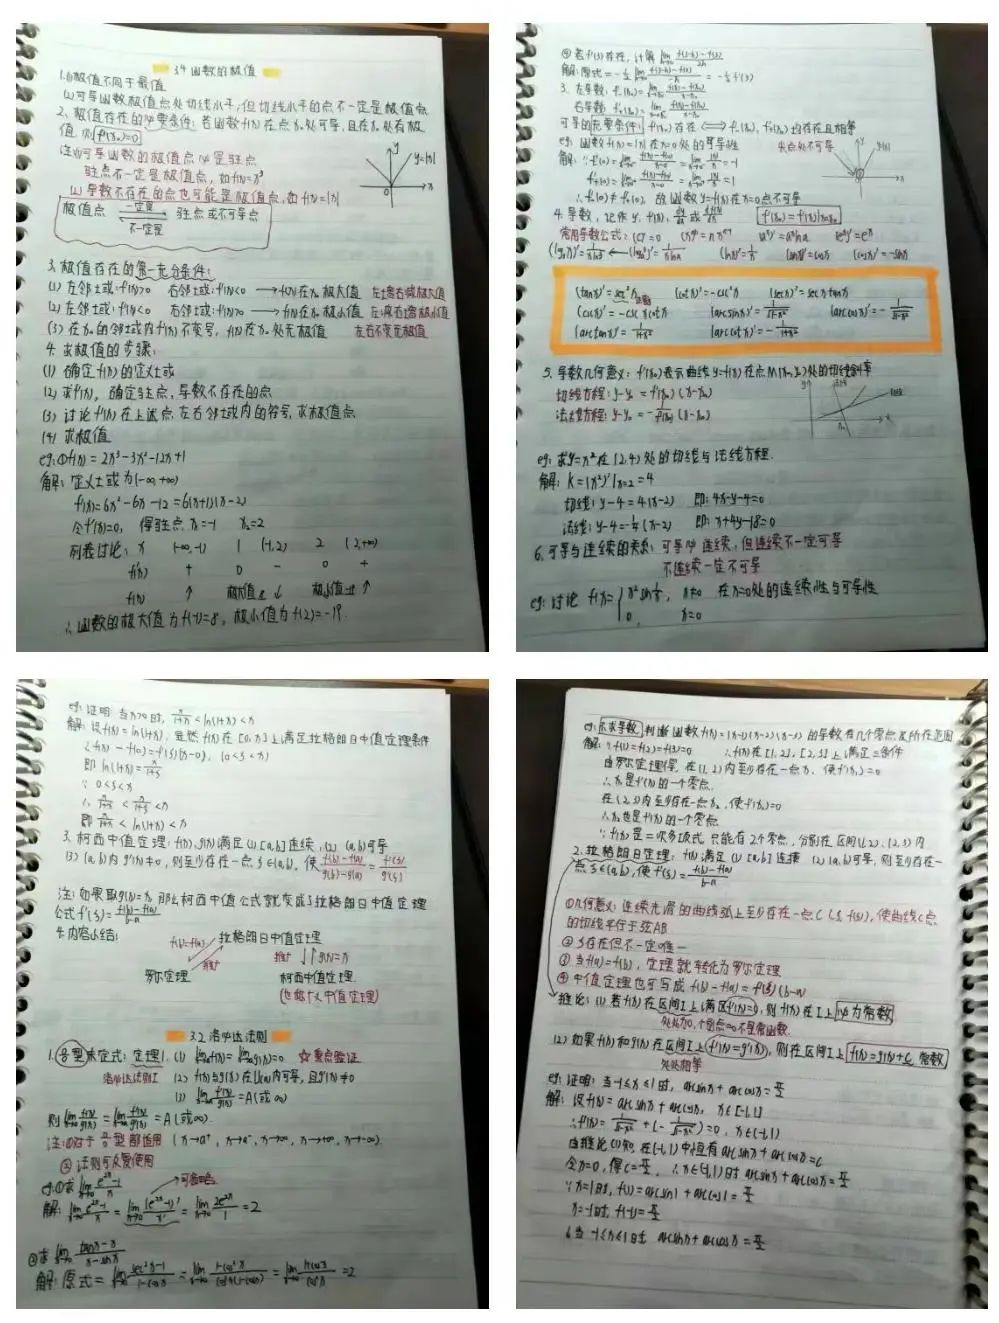 3.4 函数的极值
1.(1)极值不同于最值
(2)可导函数极值点处切线水平,但切线水平的点不一定是极值点
2、极值存在的必要条件:若函数f(x)在点x₀处可导,且在x₀处有极
值,则f'(x₀)=0
注:(1)可导函数的极值点必是驻点
驻点不一定是极值点,如f(x)=x³
(2)导数不存在的点也可能是极值点,如f(x)=|x|
y y=|x|
0 x
极值点 一定是 驻点或不可导点
不一定是
3.极值存在的第一充分条件:
(1)左邻域:f'(x)>0 右邻域:f'(x)<0 → f(x)在x₀极大值 左增右减极大值
(2)左邻域:f'(x)<0 右邻域:f'(x)>0 → f(x)在x₀极小值 左减右增极小值
(3)在x₀的邻域内f'(x)不变号,f(x)在x₀处无极值 左右不变无极值
4.求极值的步骤:
(1)确定f(x)的定义域
(2)求f'(x),确定驻点,导数不存在的点
(3)讨论f'(x)在上述点左右邻域内的符号,求极值点
(4)求极值
eg:①f(x)=2x³-3x²-12x+1
解:定义域为(-∞,+∞)
f'(x)=6x²-6x-12=6(x+1)(x-2)
令f'(x)=0,得驻点x₁=-1 x₂=2
列表讨论:x (-∞,-1) 1 (-1,2) 2 (2,+∞)
f'(x) + 0 - 0 +
f(x) ↑ 极大值8 ↓ 极小值-19 ↑
∴函数的极大值为f(-1)=8,极小值为f(2)=-19.
④若f'(3)存在,计算lim f(3-h)-f(3)/2h
解:原式=-½ lim f(3-h)-f(3)/-h=-½f'(3)
3.左导数:f'₋(x₀)=lim f(x)-f(x₀)/x-x₀
右导数:f'₊(x₀)=lim f(x)-f(x₀)/x-x₀
可导的充要条件:f'(x₀)存在⟺f'₋(x₀),f'₊(x₀)均存在且相等
eg:函数f(x)=|x|在x=0处的可导性 尖点处不可导
解:∵f'₋(0)=lim f(x)-f(0)/x-0=lim |x|/x=-1
f'₊(0)=lim f(x)-f(0)/x-0=lim |x|/x=1
∴f'₋(0)≠f'₊(0),故函数y=f(x)在x=0点不可导
4.导数,记作y',f'(x),dy/dx或df(x)/dx f'(x₀)=f'(x)|x=x₀
常用导数公式:(C)'=0 (xⁿ)'=nxⁿ⁻¹ (aˣ)'=aˣlna (eˣ)'=eˣ
(lnx)'=1/x (sinx)'=cosx (cosx)'=-sinx
(tanx)'=sec²x (cotx)'=-csc²x (secx)'=secx tanx
(cscx)'=-cscxcotx (arcsinx)'=1/√1-x² (arccosx)'=-1/√1-x²
(arctanx)'=1/1+x² (arccotx)'=-1/1+x²
5.导数几何意义:f'(x₀)表示曲线y=f(x)在点M(x₀,y₀)处的切线斜率
切线方程:y-y₀=f'(x₀)(x-x₀)
法线方程:y-y₀=-1/f'(x₀)(x-x₀)
eg:求y=x²在(2,4)处的切线与法线方程.
解:k=(x²)'|x=2=4
切线:y-4=4(x-2) 即:4x-y-4=0
法线:y-4=-¼(x-2) 即:x+4y-18=0
6.可导与连续的关系:可导必连续,但连续不一定可导
不连续一定不可导
eg:讨论f(x)={x²sin1/x,x≠0 在x=0处的连续性与可导性
0, x=0
eg:证明:当x>0时,x/1+x<ln(1+x)<x
解:设f(x)=ln(1+x),显然f(x)在[0,x]上满足拉格朗日中值定理条件
∴f(x)-f(0)=f'(ξ)(x-0),(0<ξ<x)
即ln(1+x)=x/1+ξ
∵0<ξ<x
∴x/1+x<x/1+ξ<x
即x/1+x<ln(1+x)<x
3.柯西中值定理:f(x),g(x)满足(1)[a,b]连续,(2)(a,b)可导
(3)(a,b)内g'(x)≠0,则至少存在一点ξ∈(a,b),使f(b)-f(a)/g(b)-g(a)=f'(ξ)/g'(ξ)
注:如果取g(x)=x,那么柯西中值公式就变成了拉格朗日中值定理
公式f'(ξ)=f(b)-f(a)/b-a
4.内容小结:
f(b)=f(a) 拉格朗日中值定理
推广 推广 g(x)=x
罗尔定理 柯西中值定理
(也称广义中值定理)
3.2 洛必达法则
1.0/0型未定式:定理1.(1)lim f(x)=lim g(x)=0 ☆重点验证
洛必达法则I (2)f(x)与g(x)在U(a)内可导,且g'(x)≠0
(3)lim f'(x)/g'(x)=A(或∞)
则lim f(x)/g(x)=lim f'(x)/g'(x)=A(或∞).
注:①对于0/0型都适用(x→a⁺,x→a⁻,x→∞,x→+∞,x→-∞).
②法则可反复使用
eg:①求lim e²ˣ-1/x 可省略
解:lim e²ˣ-1/x=lim (e²ˣ-1)'/x'=lim 2e²ˣ/1=2
②求lim tanx-x/x-sinx
解:原式=lim sec²x-1/1-cosx=lim 1-cos²x/cos²x(1-cosx)=lim 1+cosx/cos²x=2
eg:不求导数,判断函数f(x)=(x-1)(x-2)(x-3)的导数有几个零点及所在范围
解:∵f(1)=f(2)=f(3)=0 ∴f(x)在[1,2],[2,3]上满足三条件
由罗尔定理得,在(1,2)内至少存在一点x₁,使f'(x₁)=0
∴x₁是f'(x)的一个零点.
在(2,3)内至少存在一点x₂,使f'(x₂)=0
∴x₂也是f'(x)的一个零点
∵f'(x)是二次多项式,只能有2个零点,分别在区间(1,2),(2,3)内
2.拉格朗日定理:f(x)满足(1)[a,b]连续 (2)(a,b)可导,则至少存在一
点ξ∈(a,b),使f'(ξ)=f(b)-f(a)/b-a
①几何意义:连续光滑的曲线弧上至少存在一点C(ξ,f(ξ)),使曲线C点
的切线平行于弦AB
②ξ存在但不一定唯一
③当f(a)=f(b),定理就转化为罗尔定理
④中值定理也可写成f(b)-f(a)=f'(ξ)(b-a)
推论:(1)若f(x)在区间I上满足f'(x)=0,则f(x)在I上必为常数
处处为0,个别点=0不是常函数.
(2)如果f(x)和g(x)在区间I上f'(x)=g'(x),则在区间I上f(x)=g(x)+C,常数
处处相等
eg:证明:当-1≤x≤1时,arcsinx+arccosx=π/2
解:设f(x)=arcsinx+arccosx,x∈[-1,1]
∴f'(x)=1/√1-x²+(-1/√1-x²)=0,x∈(-1,1)
由推论(1)知,在(-1,1)中恒有arcsinx+arccosx=C
令x=0,得C=π/2,∴x∈(-1,1)时arcsinx+arccosx=π/2
∵x=1时,f(1)=arcsin1+arccos1=π/2
x=-1时,f(-1)=π/2
∴当-1≤x≤1时 arcsinx+arccosx=π/2